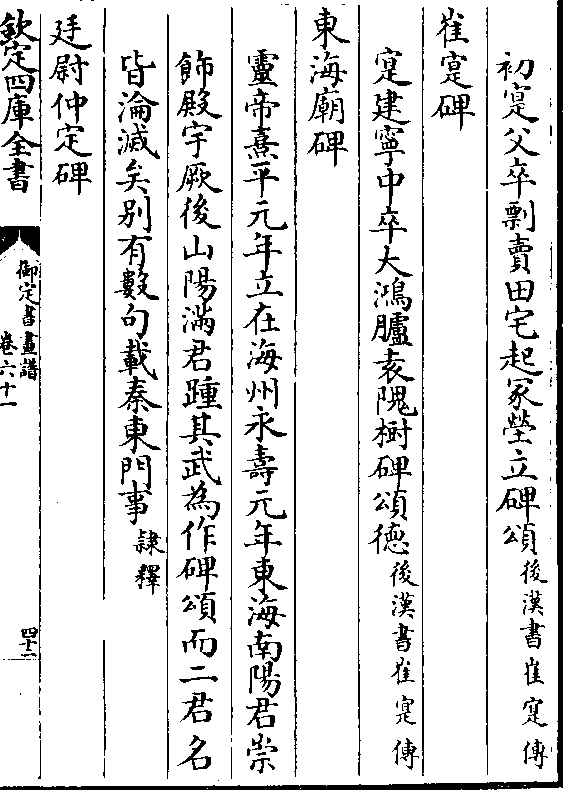 初寔父卒剽賣田宅起冢塋立碑頌後漢書崔寔傳
崔寔碑
寔建寧中卒大鴻臚袁隗樹碑頌德後漢書崔寔傳
東海廟碑
靈帝熹平元年立在海州永壽元年東海南陽君崇
飾殿宇厥後山陽滿君踵其武為作碑頌而二君名
皆淪滅矣别有數句載秦東門事隸釋
廷尉仲定碑
欽定四庫全書
御定書畫譜
卷六十一
四十二